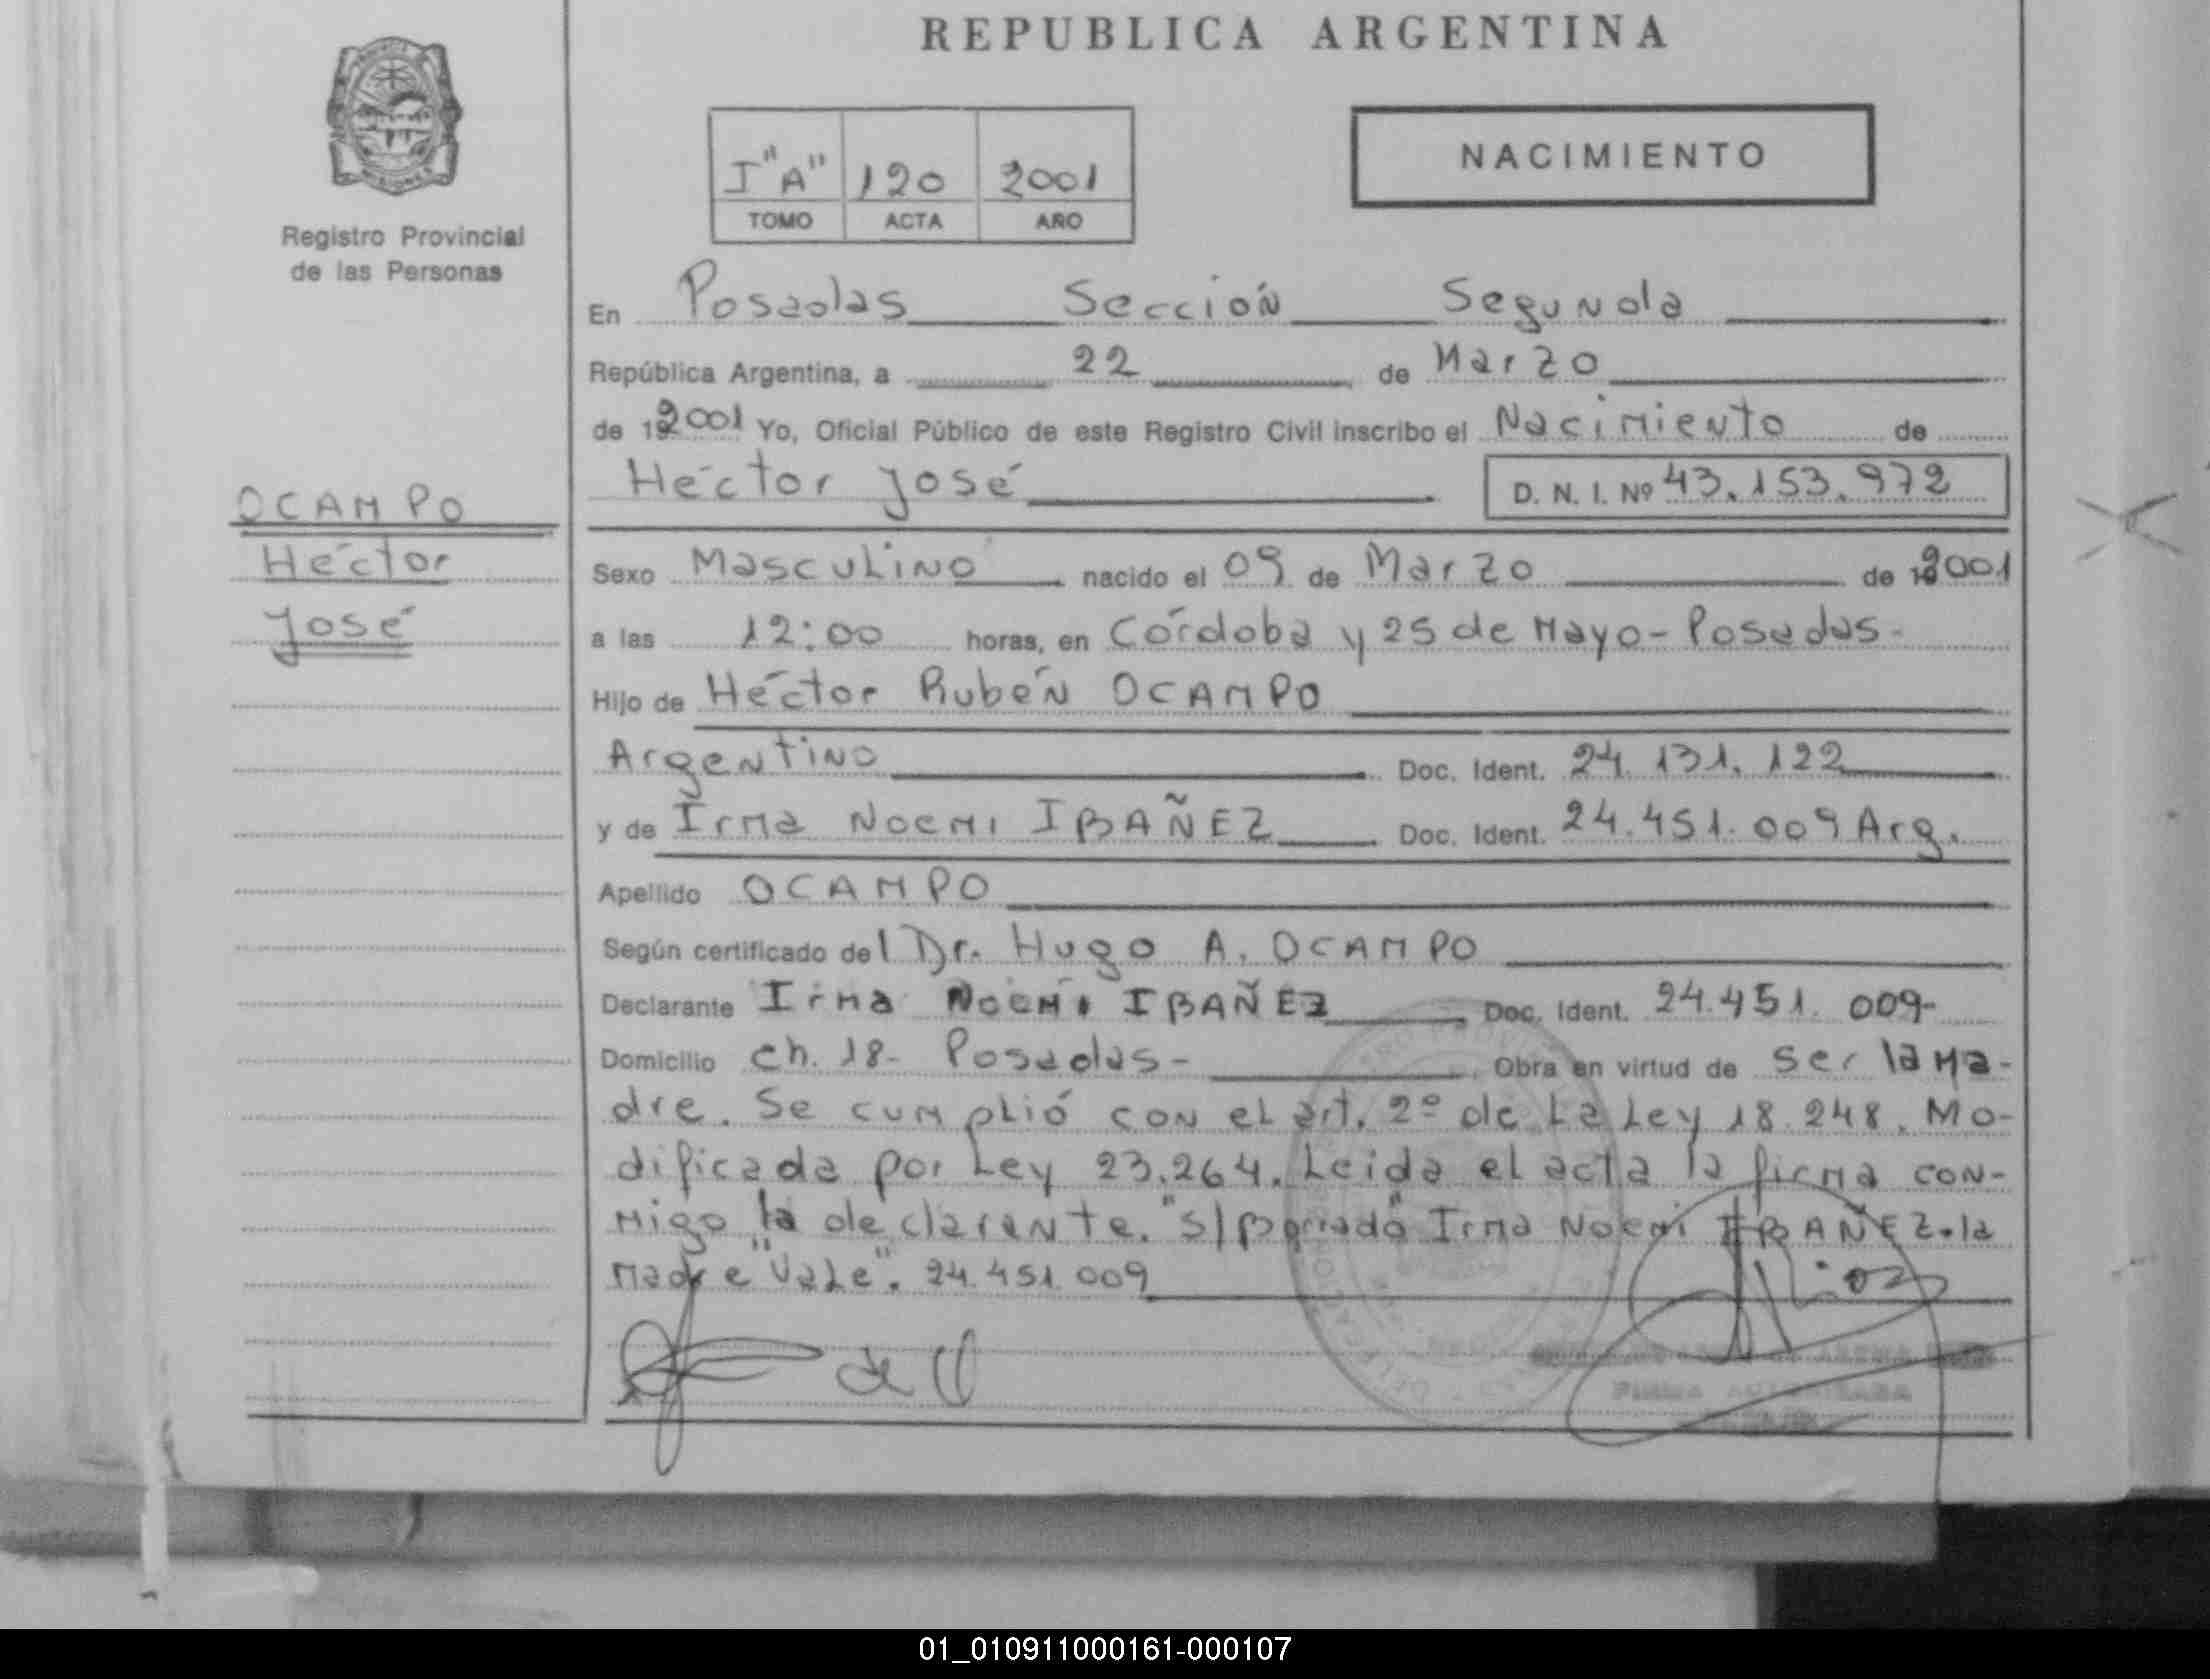 REPUBLICA ARGENTINA
MISIONES
Registro Provincial
de las Personas
I "A" 120 2001
TOMO ACTA AÑO
NACIMIENTO
En Posadas Sección Segunda
República Argentina, a 22 de Marzo
de 192001 Yo, Oficial Público de este Registro Civil inscribo el Nacimiento de
Héctor José D. N. I. Nº 43.153.972
OCAMPO
Héctor
José
Sexo Masculino nacido el 09 de Marzo de 2001
a las 12:00 horas, en Córdoba y 25 de Mayo - Posadas-
Hijo de Héctor Rubén OCAMPO
Argentino Doc. Ident. 24.131.122
y de Irma Noemi IBAÑEZ Doc. Ident. 24.451.009 Arg.
Apellido OCAMPO
Según certificado del Dr. Hugo A. OCAMPO
Declarante Irma Noemi IBAÑEZ Doc. Ident. 24.451.009-
Domicilio Ch. 18- Posadas- Obra en virtud de ser la Ma-
dre. Se cumplió con el art. 2º de La Ley 18.248. Mo-
dificada por Ley 23.264. Leida el acta la firma con-
migo la declarante. "S/Borrado" Irma Noemi IBAÑEZ. la
Madre "Vale". 24.451.009
FIRMA AUTORIZADA
01_010911000161-000107